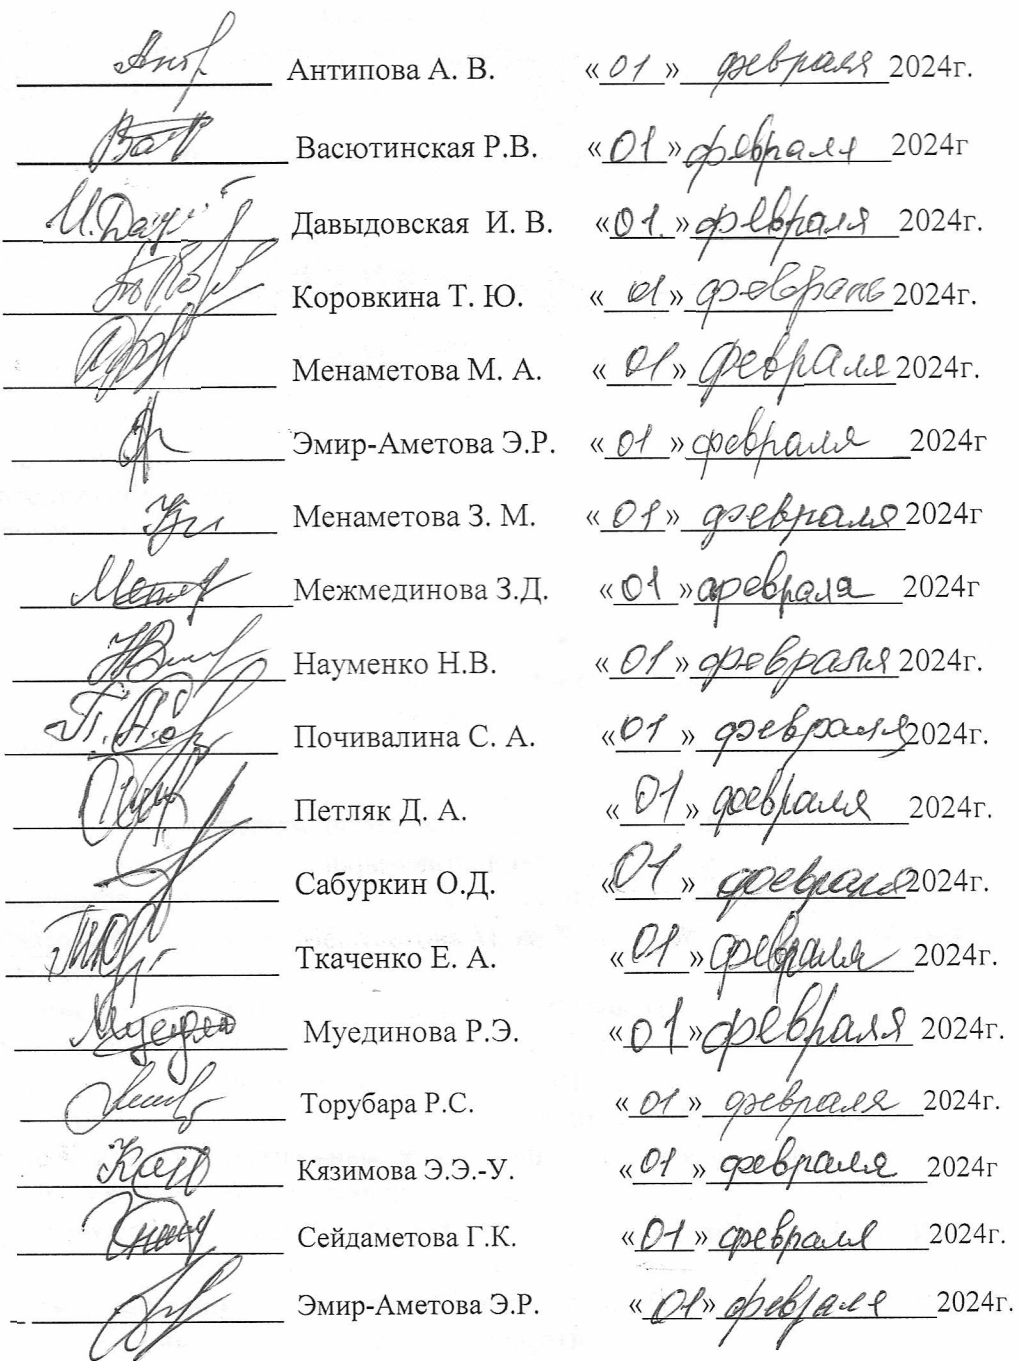 Антипова А. В. «01» февраля 2024г.
Васютинская Р.В. «01» февраля 2024г
И.Дав Давыдовская И. В. «01.» февраля 2024г.
Коровкина Т. Ю. «01» февраль 2024г.
Менаметова М. А. «01» февраля 2024г.
Эмир-Аметова Э.Р. «01» февраля 2024г
Менаметова З. М. «01» февраля 2024г
Межмединова З.Д. «01» февраля 2024г
Науменко Н.В. «01» февраля 2024г.
Почивалина С. А. «01» февраля 2024г.
Петляк Д. А. «01» февраля 2024г.
Сабуркин О.Д. «01» февраля 2024г.
Ткаченко Е. А. «01» февраля 2024г.
Муединова Р.Э. «01» февраля 2024г.
Торубара Р.С. «01» февраля 2024г.
Кязимова Э.Э.-У. «01» февраля 2024г
Сейдаметова Г.К. «01» февраля 2024г.
Эмир-Аметова Э.Р. «01» февраля 2024г.